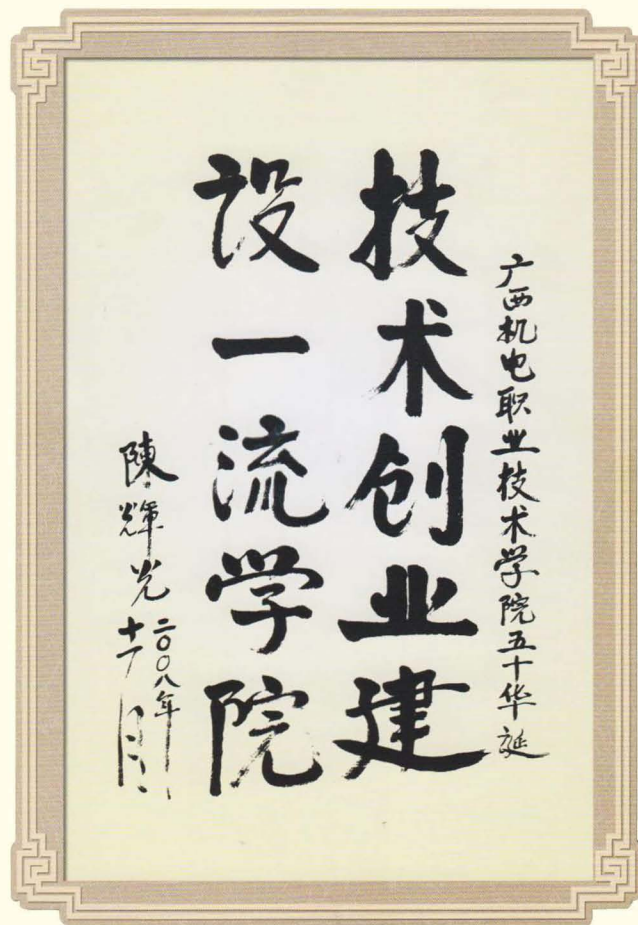 广西机电职业技术学院五十华誕
技术创业建
设一流学院
陳輝光
二〇〇八年
十一月